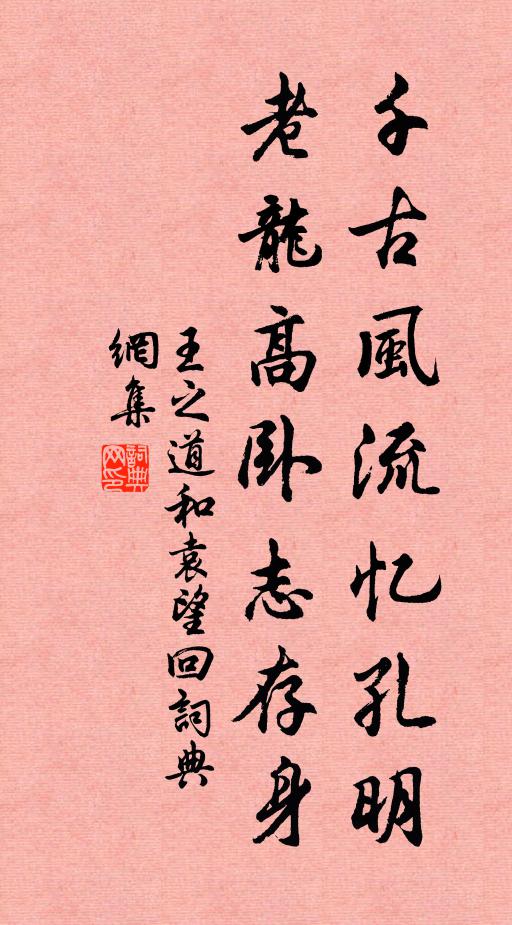 千古風流忆孔明
老龍高卧志存身
王之道和袁望回詞典
網集
詞典
网印